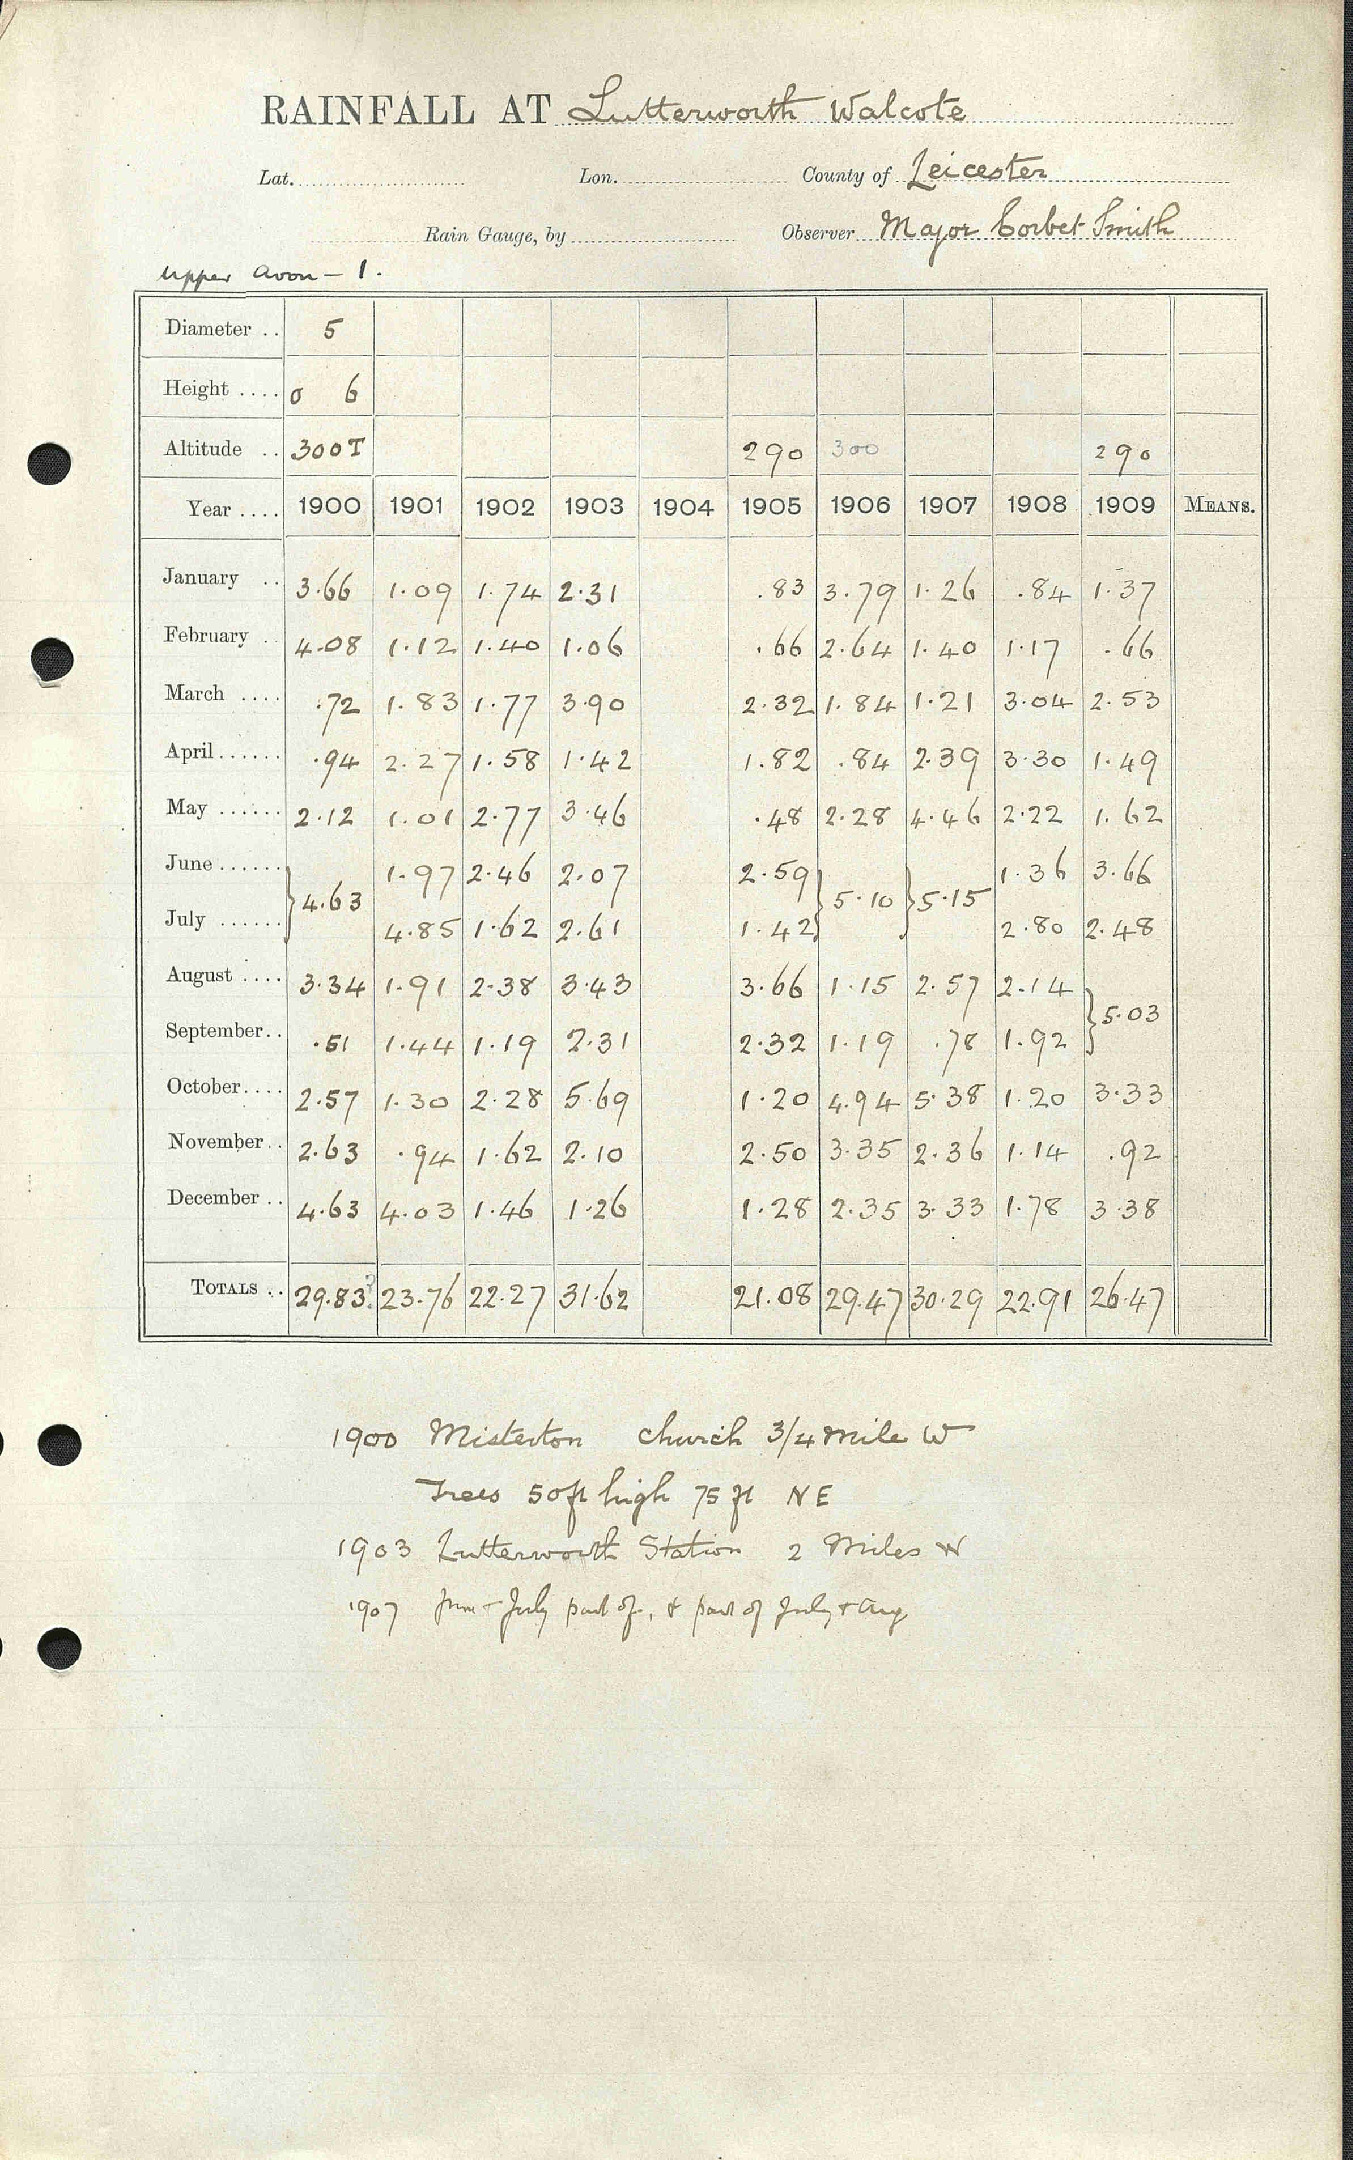 RAINFALL AT Lutterworth Walcote
Lat. Lon. County of Leicester
Rain Gauge, by Observer Major Corbet Smith
Upper Avon - 1.
Diameter .. 5
Height .... 0 6
Altitude .. 300T 290 300 290
Year .... 1900 1901 1902 1903 1904 1905 1906 1907 1908 1909 MEANS.
January .. 3.66 1.09 1.74 2.31 .83 3.79 1.26 .84 1.37
February .. 4.08 1.12 1.40 1.06 .66 2.64 1.40 1.17 .66
March .... .72 1.83 1.77 3.90 2.32 1.84 1.21 3.04 2.53
April ...... .94 2.27 1.58 1.42 1.82 .84 2.39 3.30 1.49
May ...... 2.12 1.01 2.77 3.46 .48 2.28 4.46 2.22 1.62
June ...... 1.97 2.46 2.07 2.59 1.36 3.66
} 4.63 } 5.10 } 5.15
July ...... 4.85 1.62 2.61 1.42 2.80 2.48
August .... 3.34 1.91 2.38 3.43 3.66 1.15 2.57 2.14
} 5.03
September .. .51 1.44 1.19 2.31 2.32 1.19 .78 1.92
October .... 2.57 1.30 2.28 5.69 1.20 4.94 5.38 1.20 3.33
November .. 2.63 .94 1.62 2.10 2.50 3.35 2.36 1.14 .92
December .. 4.63 4.03 1.46 1.26 1.28 2.35 3.33 1.78 3.38
TOTALS .. 29.83? 23.76 22.27 31.62 21.08 29.47 30.29 22.91 26.47
1900 Misterton church 3/4 mile W
Trees 50ft high 75 ft NE
1903 Lutterworth Station 2 Miles W
1907 June & July part of, & part of July & Aug